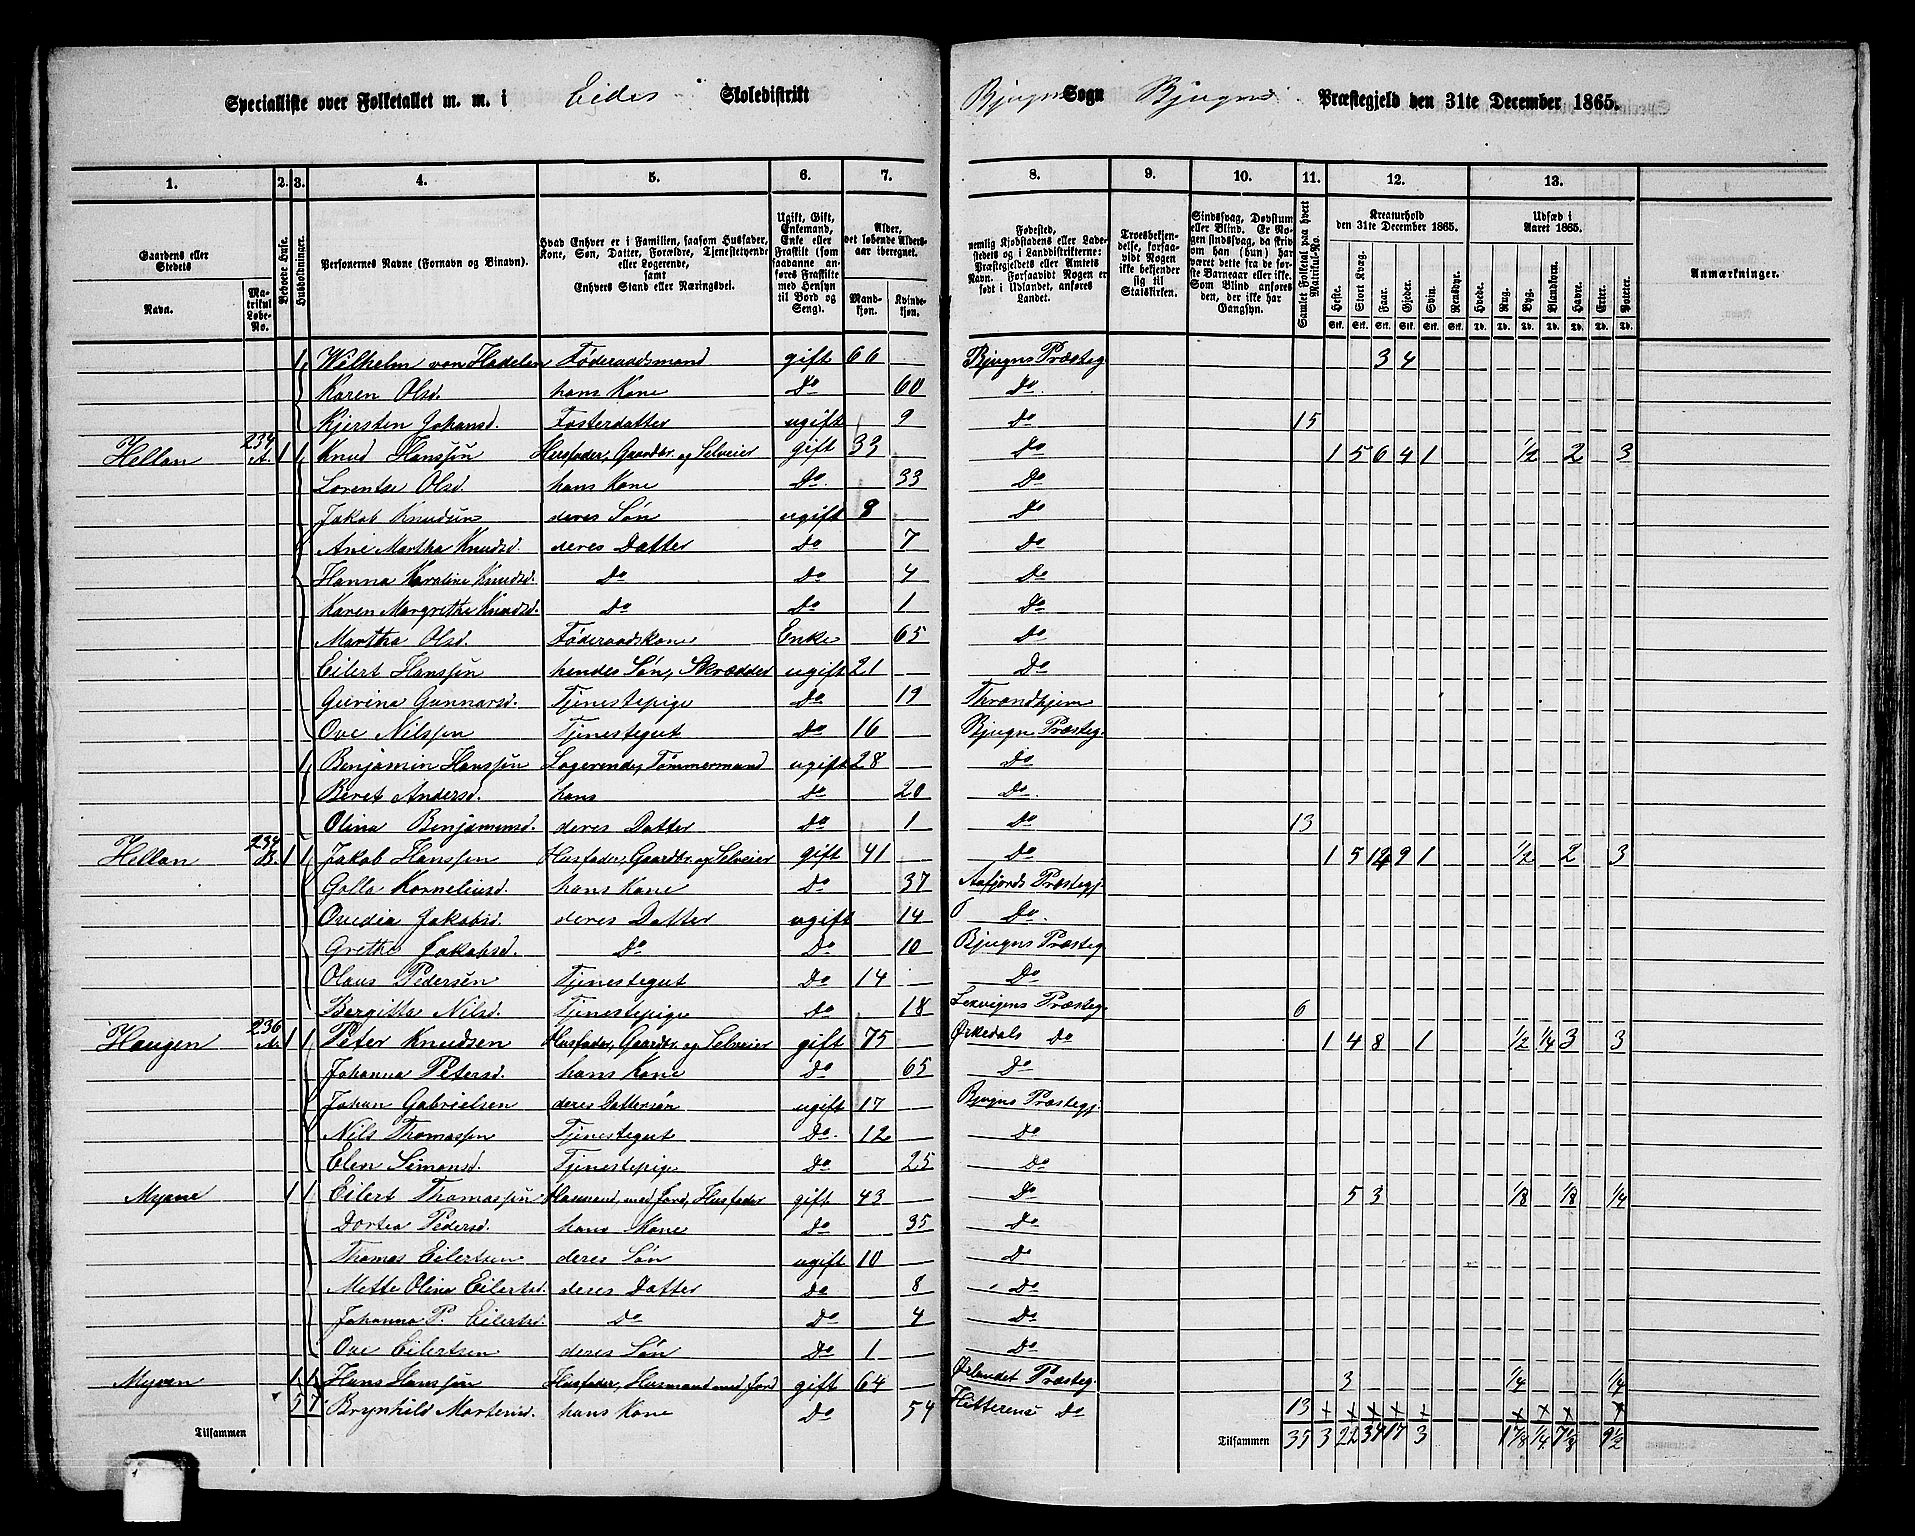 Specialliste over Folketallet m. m. i Eides Skoledistrikt Bjugns Sogn Bjugns Præstegjeld den 31te December 1865.
1. 2. 3. 4. 5. 6. 7. 8. 9. 10. 11. 12. 13.
Gaardens eller Stedets Navn. Matrikul Løbe-No. Beboede Huse. Husholdninger. Personernes Navne (Fornavn og Binavn). Hvad Enhver er i Familien, saasom Husfader, Kone, Søn, Datter, Forældre, Tjenestetyende eller Logerende, samt Enhvers Stand eller Næringsvei. Ugift, Gift, Enkemand, Enke eller Fraskilt (som saadanne anføres Fraskilte med Hensyn til Bord og Seng). Alder, det løbende Aldersaar iberegnet. Mandkjøn. Kvindekjøn. Fødested, nemlig Kjøbstadens eller Ladestedets og i Landdistrikterne: Præstegjeldets eller Amtets Navn. Forsaavidt Nogen er født i Udlandet, anføres Landet. Troesbekjendelse, forsaavidt Nogen ikke bekjender sig til Statskirken. Sindssvag, Døvstum eller Blind. Er Nogen sindssvag, da skrives om han (hun) har været dette fra de første Barneaar eller ikke. Som Blind anføres den, der ikke har Gangsyn. Samlet Folketal paa hvert Matrikul-No. Kreaturhold den 31te December 1865. Heste. Stort Kvæg. Faar. Gjeder. Svin. Rensdyr. Udsæd i Aaret 1865. Hvede. Rug. Byg. Blandkorn. Havre. Erter. Poteter. Anmærkninger.
1 Wilhelm von Hadelen Føderaadsmand gift 66 Bjugns Præsteg. 3 4
Karen Olsd. hans Kone Do 60 Do
Kjersten Johansd. Fosterdatter ugift 9 Do 15
Hellan 234 A. 1 1 Knud Hanssøn Husfader, Gaardbr. og Selveier gift 33 Do 1 5 6 4 1 1/2 2 3
Lorentse Olsd. hans Kone Do 33 Do
Jakob Knudsen deres Søn ugift 8 Do
Ane Martha Knudsd. deres Datter Do 7 Do
Hanna Karoline Knudsd. Do Do 4 Do
Karen Margrethe Knudsd. Do Do 1 Do
Martha Olsd. Føderaadskone Enke 65 Do
Eilert Hanssøn hendes Søn, Skrædder ugift 21 Do
Gurina Gunnarsd. Tjenestepige Do 19 Throndhjem
Ove Nilssen Tjenestegut Do 16 Bjugns Præsteg.
1 Benjamin Hanssøn Logerende, Tømmermand ugift 28 Do
Beret Andersd. hans Do 20 Do
Olina Benjaminsd. deres Datter Do 1 Do 13
Hellan 234 B. 1 1 Jakob Hanssen Husfader, Gaardbr. og Selveier gift 41 Do 1 5 12 9 1 1/2 2 3
Golla Korneliusd. hans Kone Do 37 Aafjords Præstegj.
Ovedia Jakobsd. deres Datter ugift 14 Do
Grethe Jakobsd. Do Do 10 Bjugns Præsteg.
Olaus Pedersen Tjenestegut Do 14 Do
Bergitta Nilsd. Tjenestepige Do 18 Lexvigens Præsteg. 6
Haugen 236 A. 1 1 Peter Knudsen Husfader, Gaardbr. og Selveier gift 75 Ørkedals Do 1 4 8 1 1/2 1/4 3 3
Johanna Petersd. hans Kone Do 65 Do
Johan Gabrielsen deres Dattersøn ugift 17 Bjugns Præstegj.
Nils Thomassen Tjenestegut Do 12 Do
Elen Simonsd. Tjenestepige Do 25 Do
Myrne 1 1 Eilert Thomassøn Husmand med Jord, Husfader gift 43 Do 5 3 1/8 1/8 1/4
Dortea Pedersd. hans Kone Do 35 Do
Thomas Eilertsen deres Søn ugift 10 Do
Mette Olina Eilertsd. deres Datter Do 8 Do
Johanna P. Eilertsd. Do Do 4 Do
Ove Eilertsen deres Søn Do 1 Do
Myren 1 1 Hans Hanssøn Husfader, Husmand med Jord gift 64 Ørlandet Præsteg. 3 1/4 1/4
5 7 Brynhild Martensd. hans Kone Do 54 Hitterens Do 13
Tilsammen Tilsammen 35 3 22 34 17 3 1 7/8 1/4 9 1/2